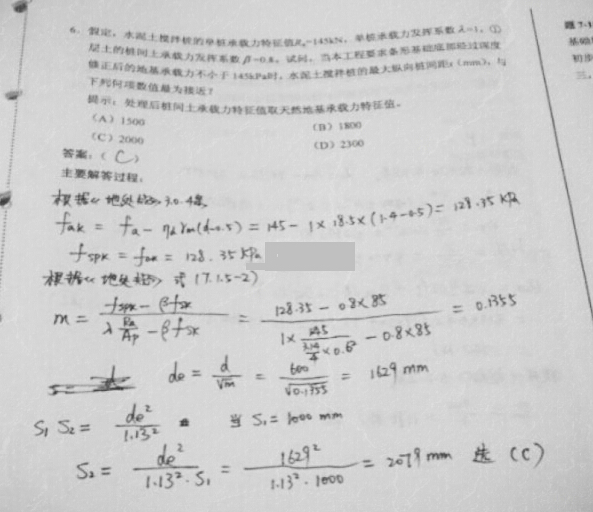 6. 假定，水泥土搅拌桩的单桩承载力特征值Rₐ=145kN，单桩承载力发挥系数λ=1，①
层土的桩间土承载力发挥系数β=0.8。试问，当本工程要求条形基础底部经过深度
修正后的地基承载力不小于145kPa时，水泥土搅拌桩的最大纵向桩间距s（mm），与
下列何项数值最为接近？
提示：处理后桩间土承载力特征值取天然地基承载力特征值。
（A）1500 （B）1800
（C）2000 （D）2300
答案：（C）
主要解答过程：
根据《地处规》3.0.4条,
fak = fa - ηd γm(d-0.5) = 145 - 1×18.5×(1.4-0.5) = 128.35 kPa
fspk = fak = 128.35 kPa
根据《地处规》式(7.1.5-2)
m = (fspk - βfsk)/(λ Ra/Ap - βfsk) = (128.35 - 0.8×85)/(1× 145/(3.14/4 ×0.6²) - 0.8×85) = 0.1355
de = d/√m = 600/√0.1355 = 1629 mm
S₁ S₂ = de²/1.13² 当 S₁ = 1000 mm
S₂ = de²/(1.13²·S₁) = 1629²/(1.13²·1000) = 2079 mm 选 (C)
题7-1
基础
初步
三、